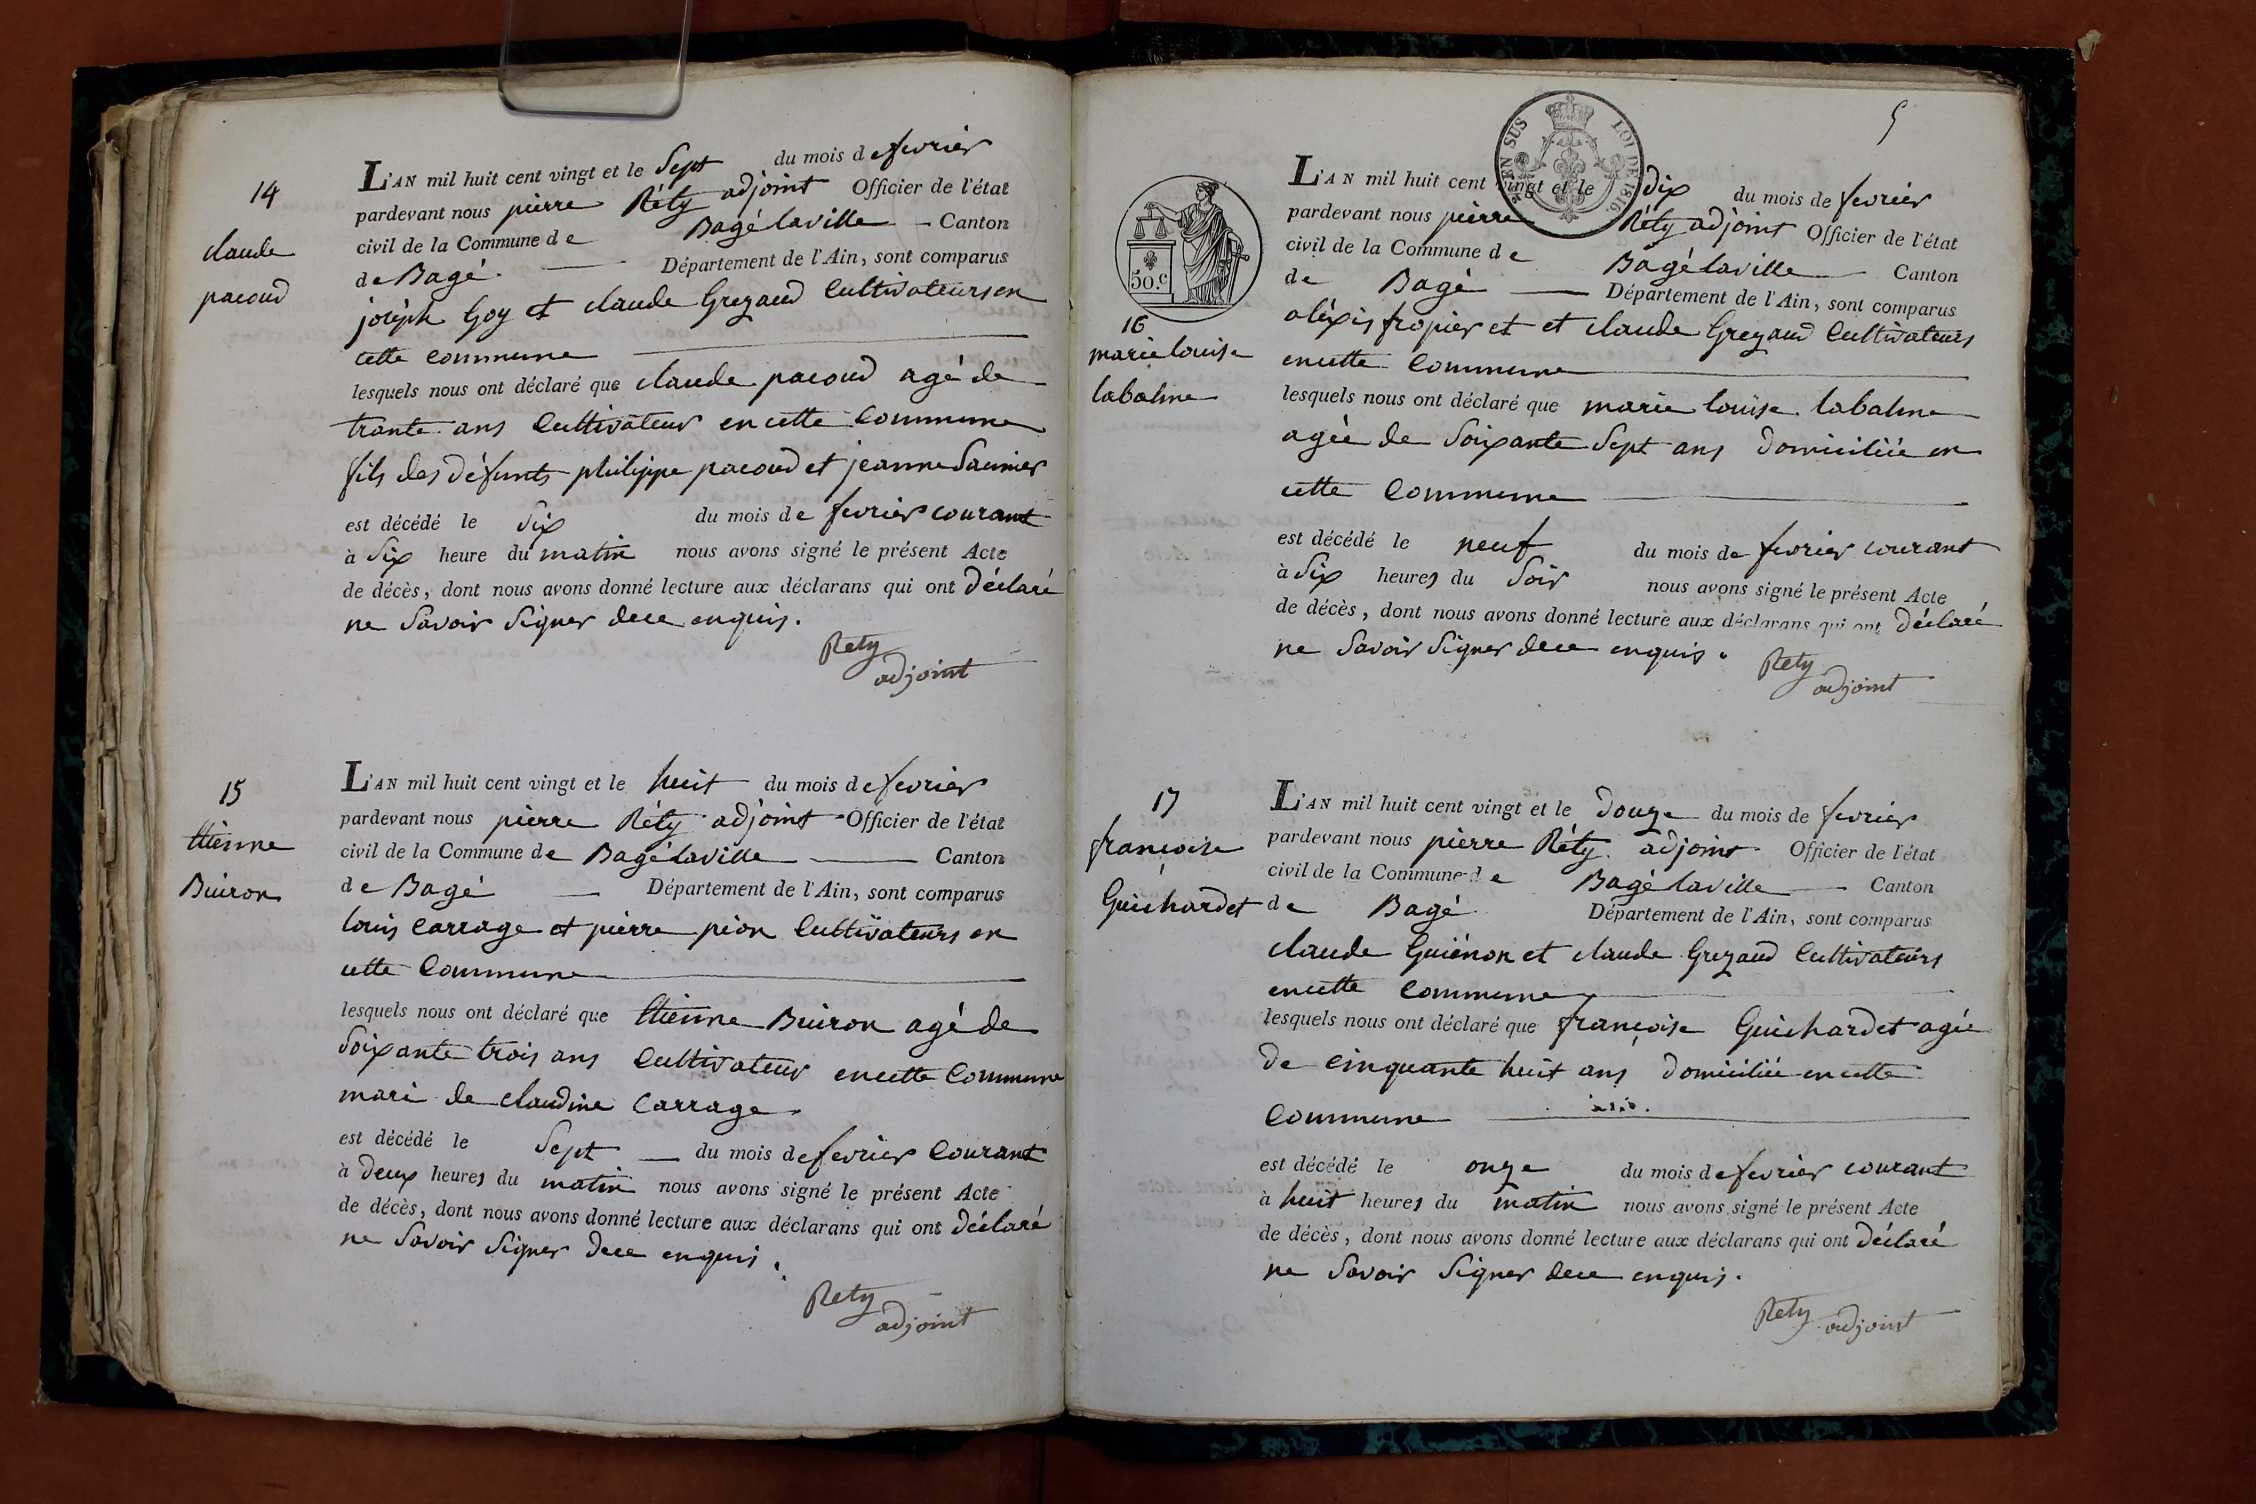 14
claude
pacoud
L'AN mil huit cent vingt et le Sept du mois de fevrier
pardevant nous pierre Réty adjoint Officier de l'état
civil de la Commune de Bagé laville Canton
de Bagé Département de l'Ain, sont comparus
joséph Goy et claude Grezaud Cultivateurs en
cette Commune
lesquels nous ont déclaré que claude pacoud agé de
trante ans Cultivateur en cette Commune
fils des défunts philippe pacoud et jeanne Saunier
est décédé le Six du mois de fevrier courant
à Six heure du matin nous avons signé le présent Acte
de décès, dont nous avons donné lecture aux déclarans qui ont déclaré
ne Savoir Signer de ce enquis.
Rety
adjoint
15
Etienne
Buiron
L'AN mil huit cent vingt et le huit du mois de fevrier
pardevant nous pierre Réty adjoint Officier de l'état
civil de la Commune de Bagé laville Canton
de Bagé Département de l'Ain, sont comparus
louis Carrage et pierre pion Cultivateurs en
cette Commune
lesquels nous ont déclaré que Etienne Buiron agé de
Soixante trois ans Cultivateur en cette Commune
mari de claudine Carrage
est décédé le Sept du mois de fevrier Courant
à deux heures du matin nous avons signé le présent Acte
de décès, dont nous avons donné lecture aux déclarans qui ont déclaré
ne Savoir Signer de ce enquis.
Rety
adjoint
5
EN SUS
LOI DE 1816.
50.c
16
marie louise
labalme
L'AN mil huit cent vingt et le dix du mois de fevrier
pardevant nous pierre Réty adjoint Officier de l'état
civil de la Commune de Bagé laville Canton
de Bagé Département de l'Ain, sont comparus
aléxis fropier et et claude Grezaud Cultivateurs
en cette Commune
lesquels nous ont déclaré que marie louise labalme
agée de Soixante Sept ans domiciliée en
cette Commune
est décédé le neuf du mois de fevrier courant
à Six heures du Soir nous avons signé le présent Acte
de décès, dont nous avons donné lecture aux déclarans qui ont déclaré
ne Savoir Signer de ce enquis.
Rety
adjoint
17
francoise
Guichardet
L'AN mil huit cent vingt et le douze du mois de fevrier
pardevant nous pierre Réty adjoint Officier de l'état
civil de la Commune de Bagé laville Canton
de Bagé Département de l'Ain, sont comparus
claude Guiénon et claude Grezaud Cultivateurs
en cette Commune
lesquels nous ont déclaré que françoise Guichardet agée
de Cinquante huit ans domiciliée en cette
Commune
est décédé le onze du mois de fevrier courant
à huit heures du matin nous avons signé le présent Acte
de décès, dont nous avons donné lecture aux déclarans qui ont déclaré
ne Savoir Signer de ce enquis.
Rety
adjoint